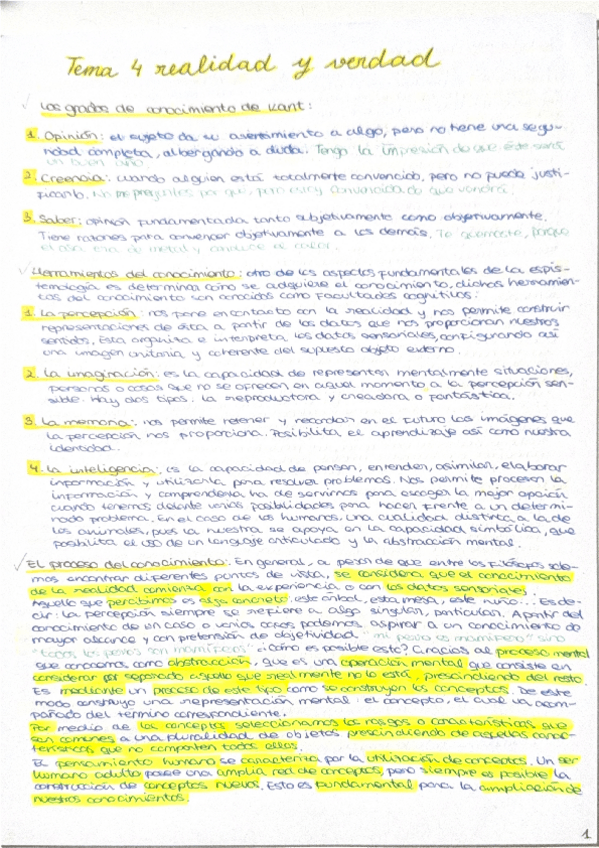 Tema 4 realidad y verdad
Los grados de conocimiento de Kant:
1. Opinión: el sujeto da su asentamiento a algo, pero no tiene una segu-
ridad completa, albergando a duda. Tengo la impresión de que éste será
un buen
2. Creencia: cuando alguien está totalmente convencido, pero no puede justi-
ficarlo. No me preguntes por qué, pero estoy convencida de que vendrá.
3. Saber: opinión fundamentada tanto subjetivamente como objetivamente.
Tiene razones para convencer objetivamente a los demás. Te quemaste, porque
el asa era de metal y conduce el calor.
Herramientas del conocimiento: otro de los aspectos fundamentales de la epis-
temología es determinar cómo se adquiere el conocimiento, dichas herramien-
tas del conocimiento son conocidas como facultades cognitivas:
1. La percepción: nos pone en contacto con la realidad y nos permite construir
representaciones de ésta a partir de los datos que nos proporcionan nuestros
sentidos. Esta organiza e interpreta los datos sensoriales, configurando así
una imagen unitaria y coherente del supuesto objeto externo.
2. La imaginación: es la capacidad de representar mentalmente situaciones,
personas o cosas que no se ofrecen en aquel momento a la percepción sen-
sible. Hay dos tipos: la reproductora y creadora o fantástica.
3. La memoria: nos permite retener y recordar en el futuro las imágenes que
la percepción nos proporciona. Posibilita el aprendizaje así como nuestra
identidad.
4. La inteligencia: es la capacidad de pensar, entender, asimilar, elaborar
información y utilizarla para resolver problemas. Nos permite procesar la
información y comprenderla ha de servirnos para escoger la mejor opción
cuando tenemos delante varias posibilidades para hacer frente a un determi-
nado problema. En el caso de los humanos, una cualidad distinta a la de
los animales, pues la nuestra se apoya en la capacidad simbólica, que
posibilita el uso de un lenguaje articulado y la abstracción mental.
El proceso del conocimiento: En general, a pesar de que entre los filósofos sole-
mos encontrar diferentes puntos de vista, se considera que el conocimiento
de la realidad comienza con la experiencia o con los datos sensoriales.
Aquello que percibimos es algo concreto: este árbol, esta mesa, este niño... Es de-
cir: la percepción siempre se refiere a algo singular, particular. A partir del
conocimiento de un caso o varios casos podemos aspirar a un conocimiento de
mayor alcance y con pretensión de objetividad. "mi perro es mamífero" sino
"todos los perros son mamíferos" ¿Cómo es posible esto? Gracias al proceso mental
que conocemos como abstracción, que es una operación mental que consiste en
considerar por separado aquello que realmente no lo está, prescindiendo del resto.
Es mediante un proceso de este tipo como se construyen los conceptos. De este
modo construyo una representación mental: el concepto, el cual va acom-
pañado del término correspondiente.
Por medio de los conceptos seleccionamos los rasgos o características que
son comunes a una pluralidad de objetos prescindiendo de aquellas carac-
terísticas que no comparten todos ellos.
El pensamiento humano se caracteriza por la utilización de conceptos. Un ser
humano adulto posee una amplia red de conceptos, pero siempre es posible la
construcción de conceptos nuevos. Esto es fundamental para la ampliación de
nuestros conocimientos.
1